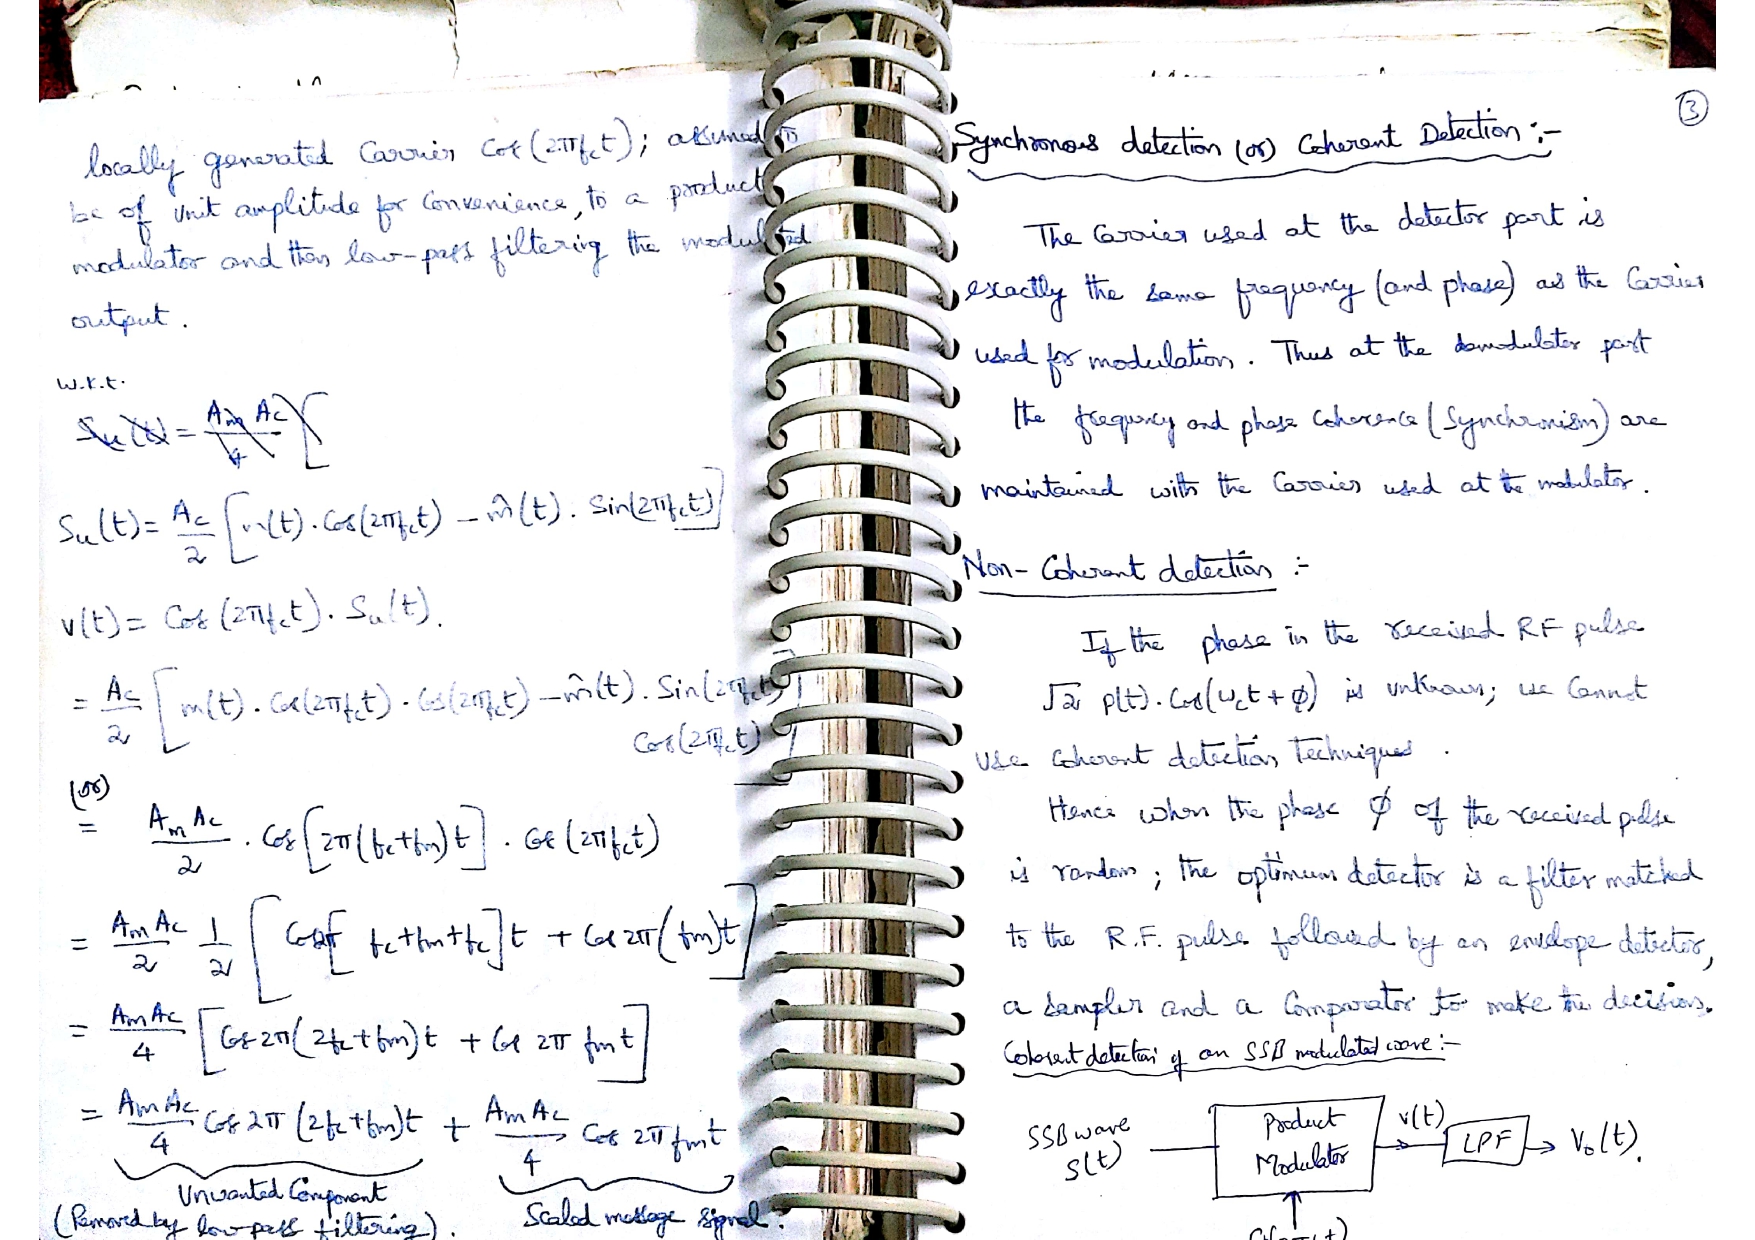 locally generated Carrier Cos(2πfct); assumed to
be of unit amplitude for Convenience, to a product
modulator and then low-pass filtering the modulated
output.
w.k.t.
Su(t) = Am Ac / 4 [
Su(t) = Ac/2 [m(t). Cos(2πfct) – m̂(t). Sin(2πfct)]
v(t) = Cos(2πfct). Su(t).
= Ac/2 [m(t). Cos(2πfct). Cos(2πfct) – m̂(t). Sin(2πfct)
Cos(2πfct)]
(or)
= Am Ac/2 . Cos[2π(fc+fm)t]. Cos(2πfct)
= Am Ac/2 1/2 [Cos2π[fc+fm+fc]t + Cos 2π(fm)t]
= Am Ac/4 [Cos 2π(2fc+fm)t + Cos 2π fmt]
= Am Ac/4 Cos 2π(2fc+fm)t + Am Ac/4 Cos 2π fmt
Unwanted Component
(Removed by low pass filtering).
Scaled message signal.
3
Synchronous detection (or) Coherent Detection :-
The Carrier used at the detector part is
exactly the same frequency (and phase) as the Carrier
used for modulation. Thus at the demodulator part
the frequency and phase Coherence (Synchronism) are
maintained with the Carrier used at the modulator.
Non-Coherent detection :-
If the phase in the received RF pulse
√2 p(t). Cos(ωct + φ) is unknown; we Cannot
use Coherent detection techniques.
Hence when the phase φ of the received pulse
is random; the optimum detector is a filter matched
to the R.F. pulse followed by an envelope detector,
a sampler and a Comparator to make the decision.
Coherent detection of an SSB modulated wave :-
SSB wave
s(t)
Product
Modulator
v(t)
LPF
Vo(t).